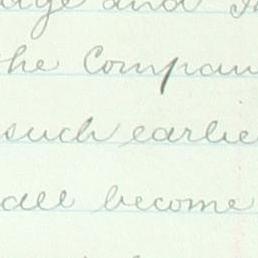 and
the Compan
such earlie
all become